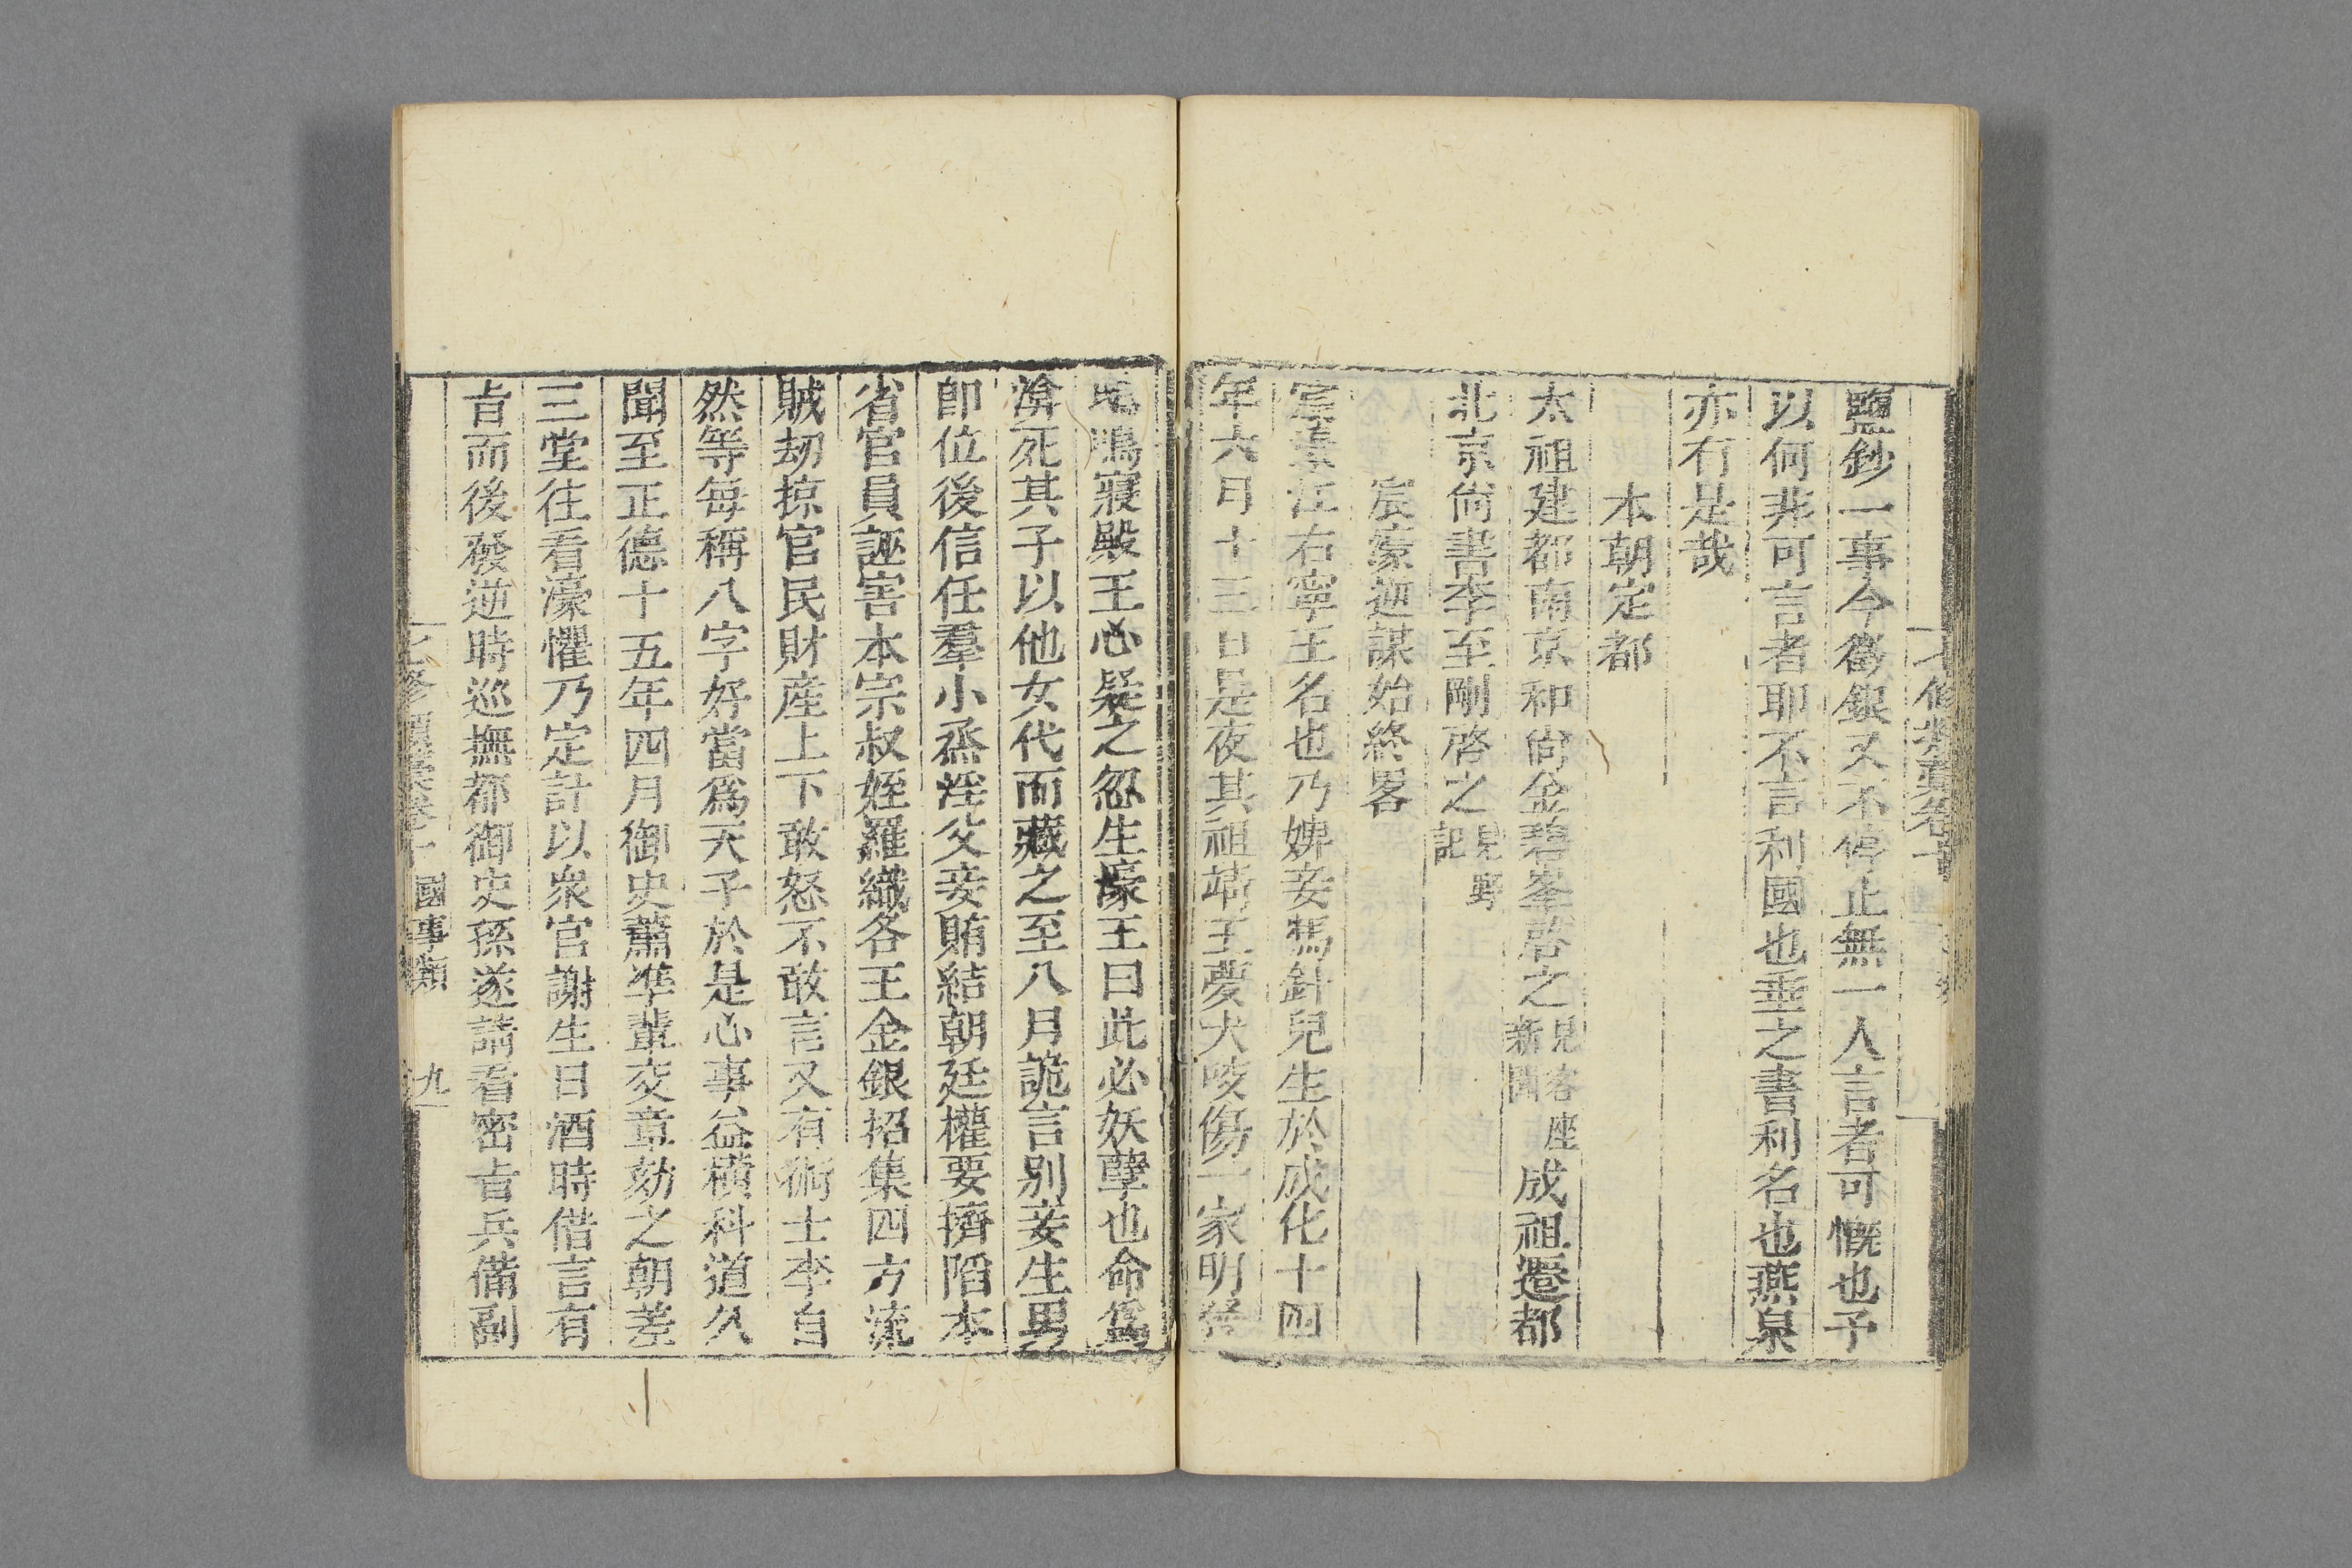 鹽鈔一事今徵銀又不停止無一人言者可慨也予
以何非可言者耶不言利國也垂之書利名也燕泉
亦有是哉
本朝定都
太祖建都南京和尙金碧峯啓之見客座新聞成祖遷都
北京尙書李至剛啓之見野記
宸濠逆謀始終畧
宸濠江右寧王名也乃娣妾馮針兒生於成化十四
年六月十三日是夜其祖靖王夢犬咬傷一家明發
鴟鳴寢殿王心疑之忽生濠王曰此必妖孽也命爲
渰死其子以他女代而藏之至八月詭言別妾生男
卽位後信任羣小烝淫父妾賄結朝廷權要擠陷本
省官員誣害本宗叔姪羅織各王金銀招集四方流
賊刼掠官民財產上下敢怒不敢言又有術士李自
然等每稱八字好當爲天子於是心事益橫科道久
聞至正德十五年四月御史蕭準輩交章劾之朝差
三堂往看濠懼乃定計以衆官謝生日酒時借言有
㫖而後發逆時巡撫都御史孫遂請看密㫖兵備副
七修類藁卷十 國事類 九